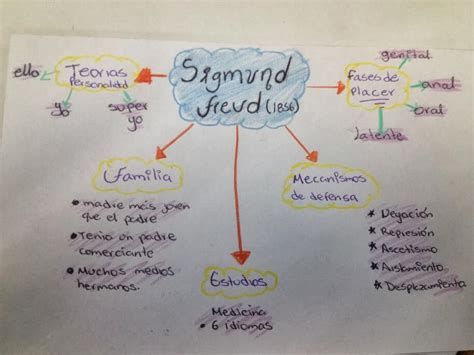 Sigmund
freud (1856)
Teorias
Personalidad
ello
yo
super
yo
fases de
placer
genital
anal
oral
latente
familia
• madre más joven
que el padre
• Tenia un padre
comerciante
• Muchos medios
hermanos.
Estudios
Medicina
• 6 idiomas
Mecanismos
de defensa
★ Negación
★ Represión
★ Ascetismo
★ Aislamiento
★ Desplazamiento